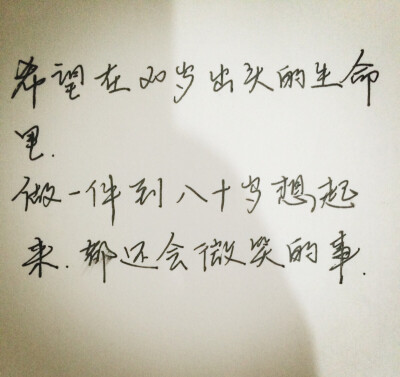 希望在20岁出头的生命
里.
做一件到八十岁想起
来.都还会微笑的事.